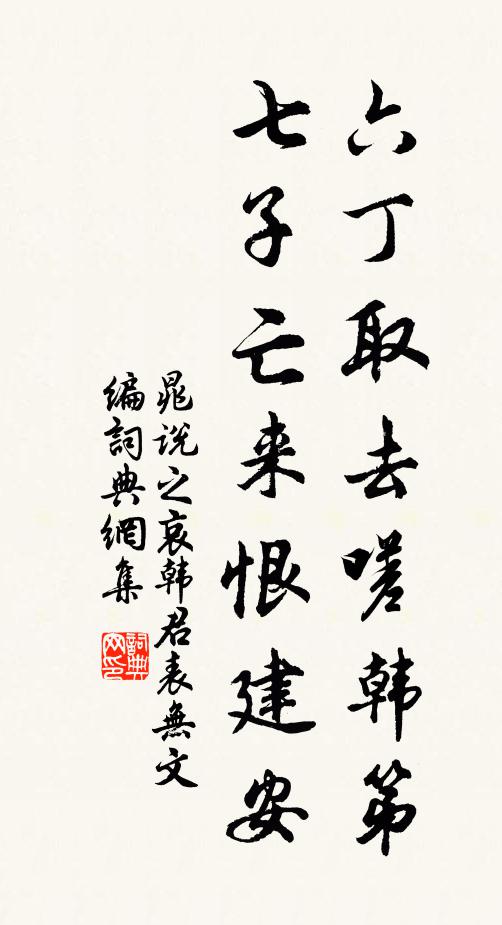 六丁取去嗟韩第
七子亡来恨建安
晁说之哀韩君表無文
编詞典網集
詞典网印